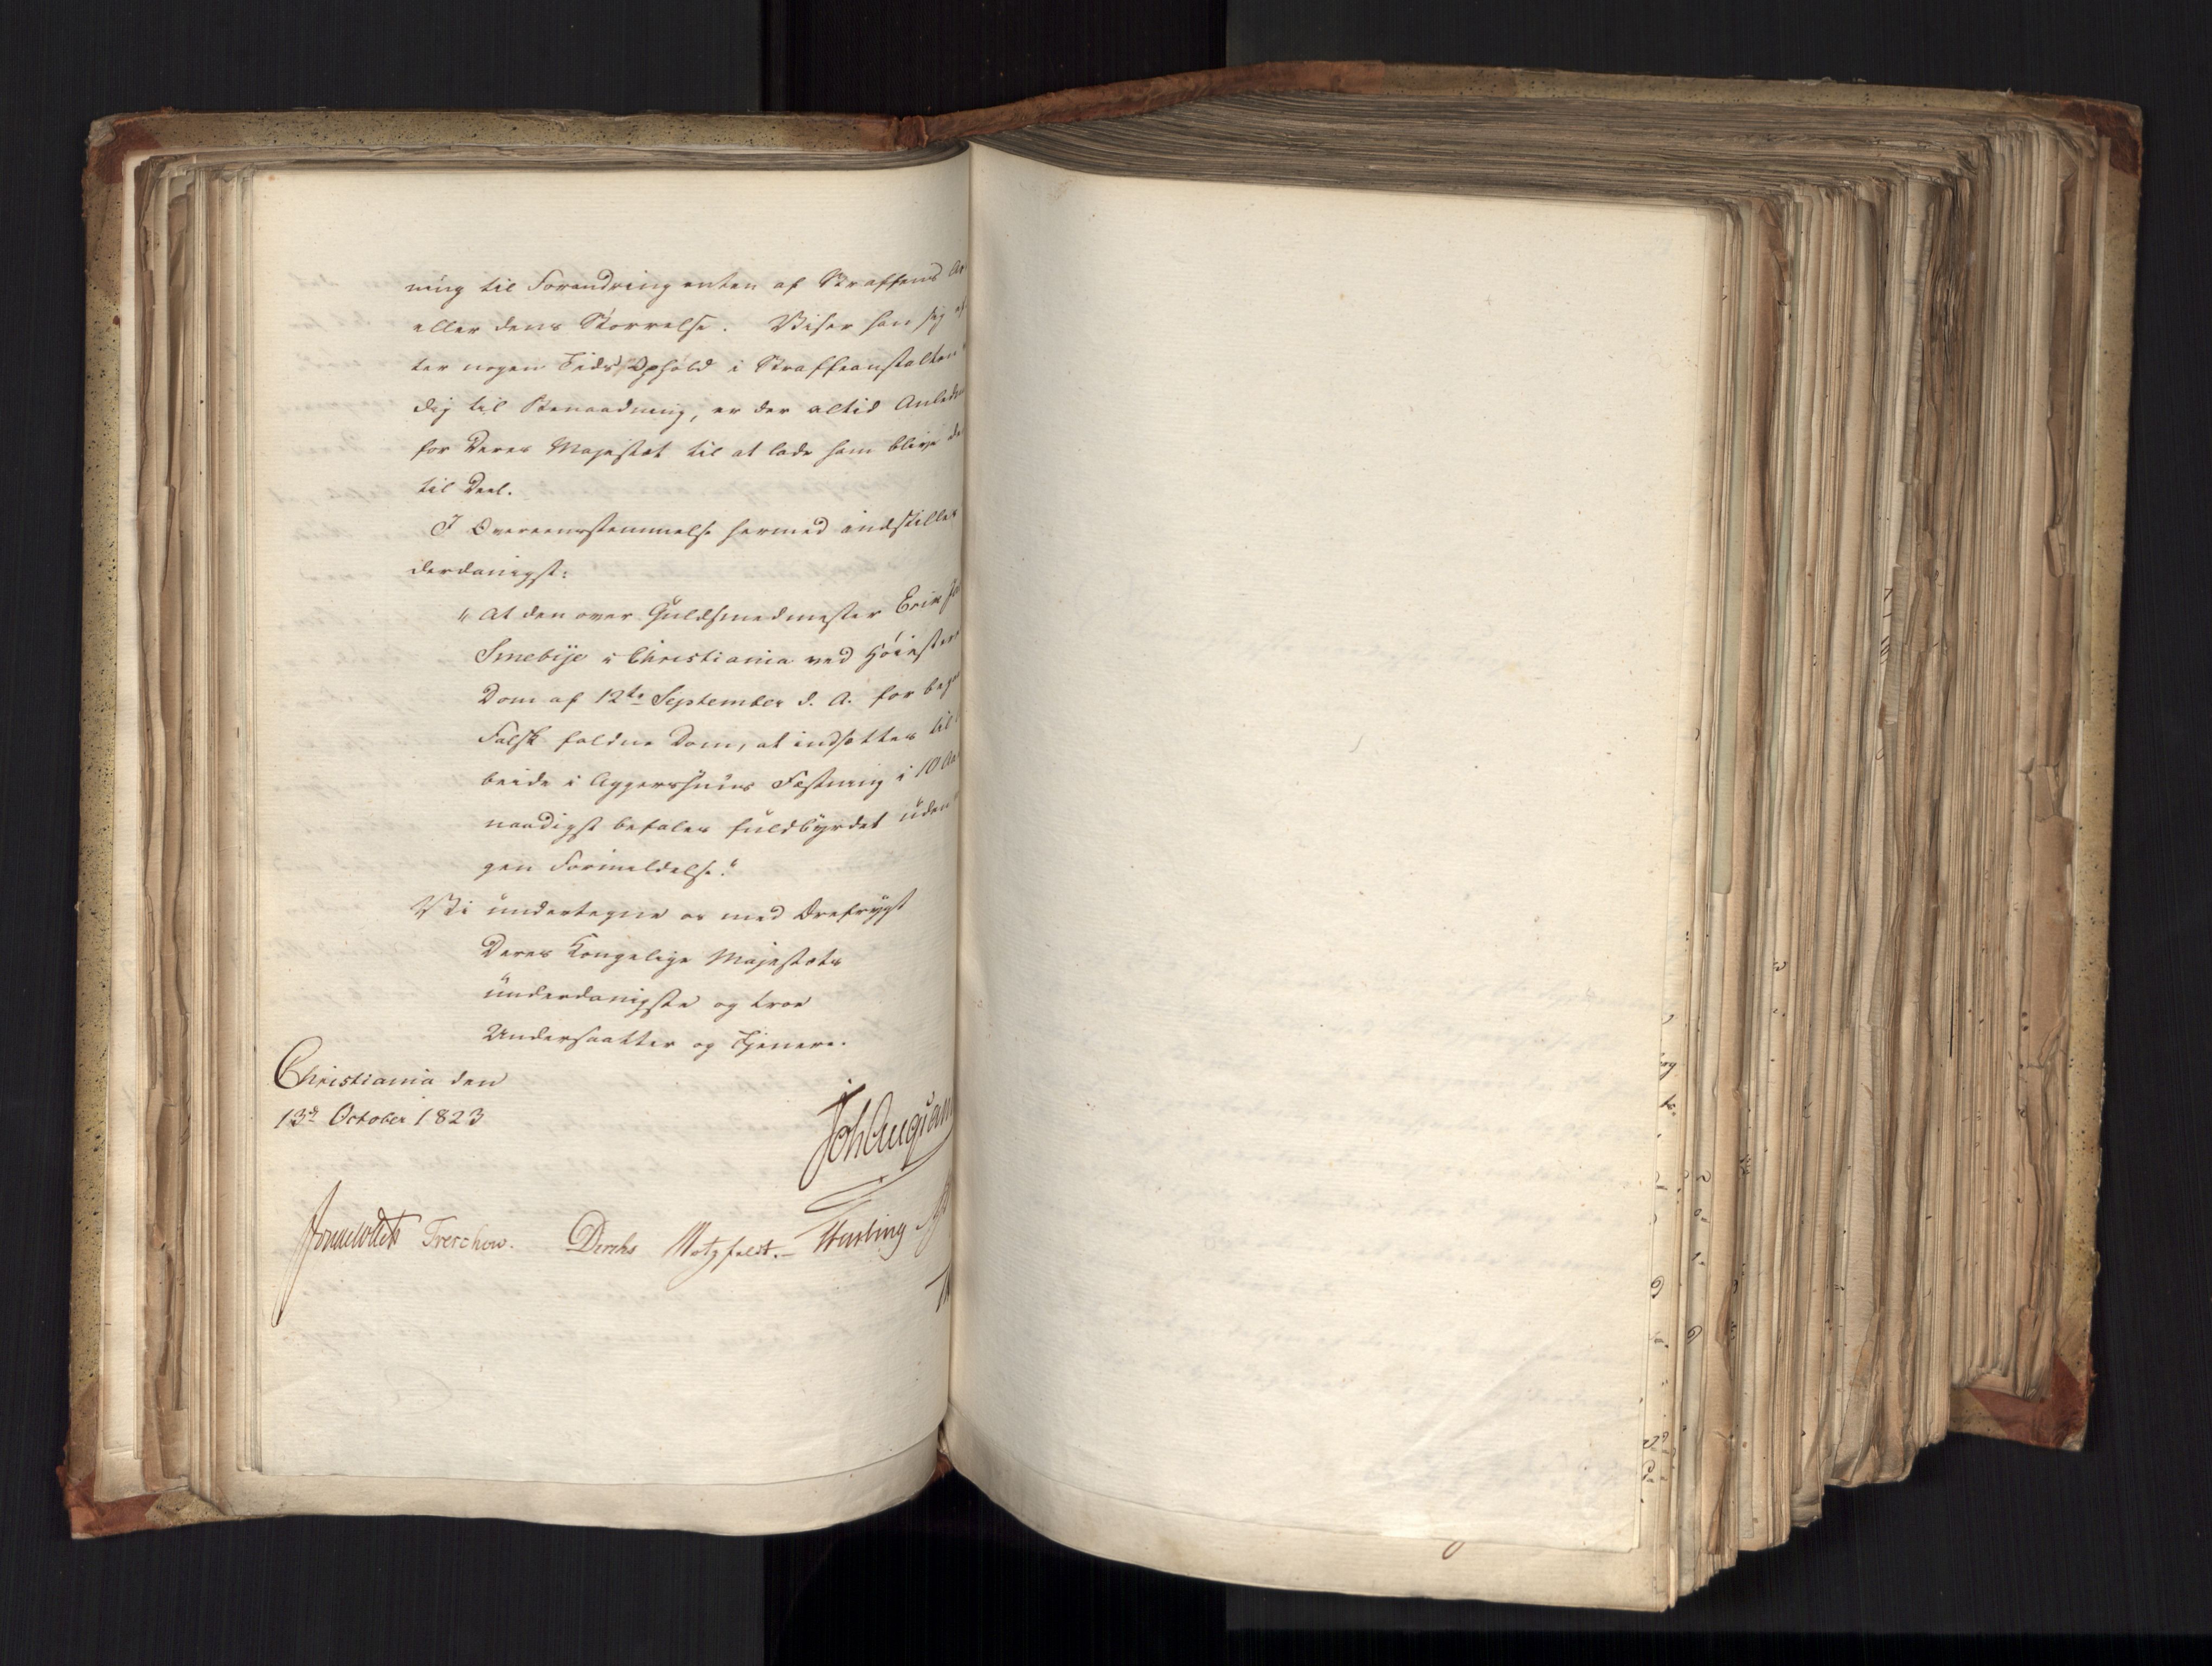 ning til Forandring enten af Straffens Ar
eller dens Størrelse. Viser han sig ef
ter nogen Tids Ophold i Straffeanstalten
dig til Benaadning, er der altid Anledn
for Deres Majestæt til at lade ham blive de
til Deel.
I Overeensstemmelse hermed indstilles
derdanigst:
"At den over Guldsmedmester Erik
Smebye i Christiania ved Høieste
Dom af 12te September d. A. for
Falsk faldne Dom, at indsættes til
beide i Aggershuus Fæstning i 10 Aa
naadigst befales fuldbyrdet uden
gen Formildelse."
Vi undertegne os med Ærefrygt
Deres Kongelige Majestæts
underdanigste og troe
Undersaatter og Tjenere.
Christiania den
13de October 1823
Joh Aug Sand
Sommerhielm Treschow. Diriks Motzfeldt. Fasting